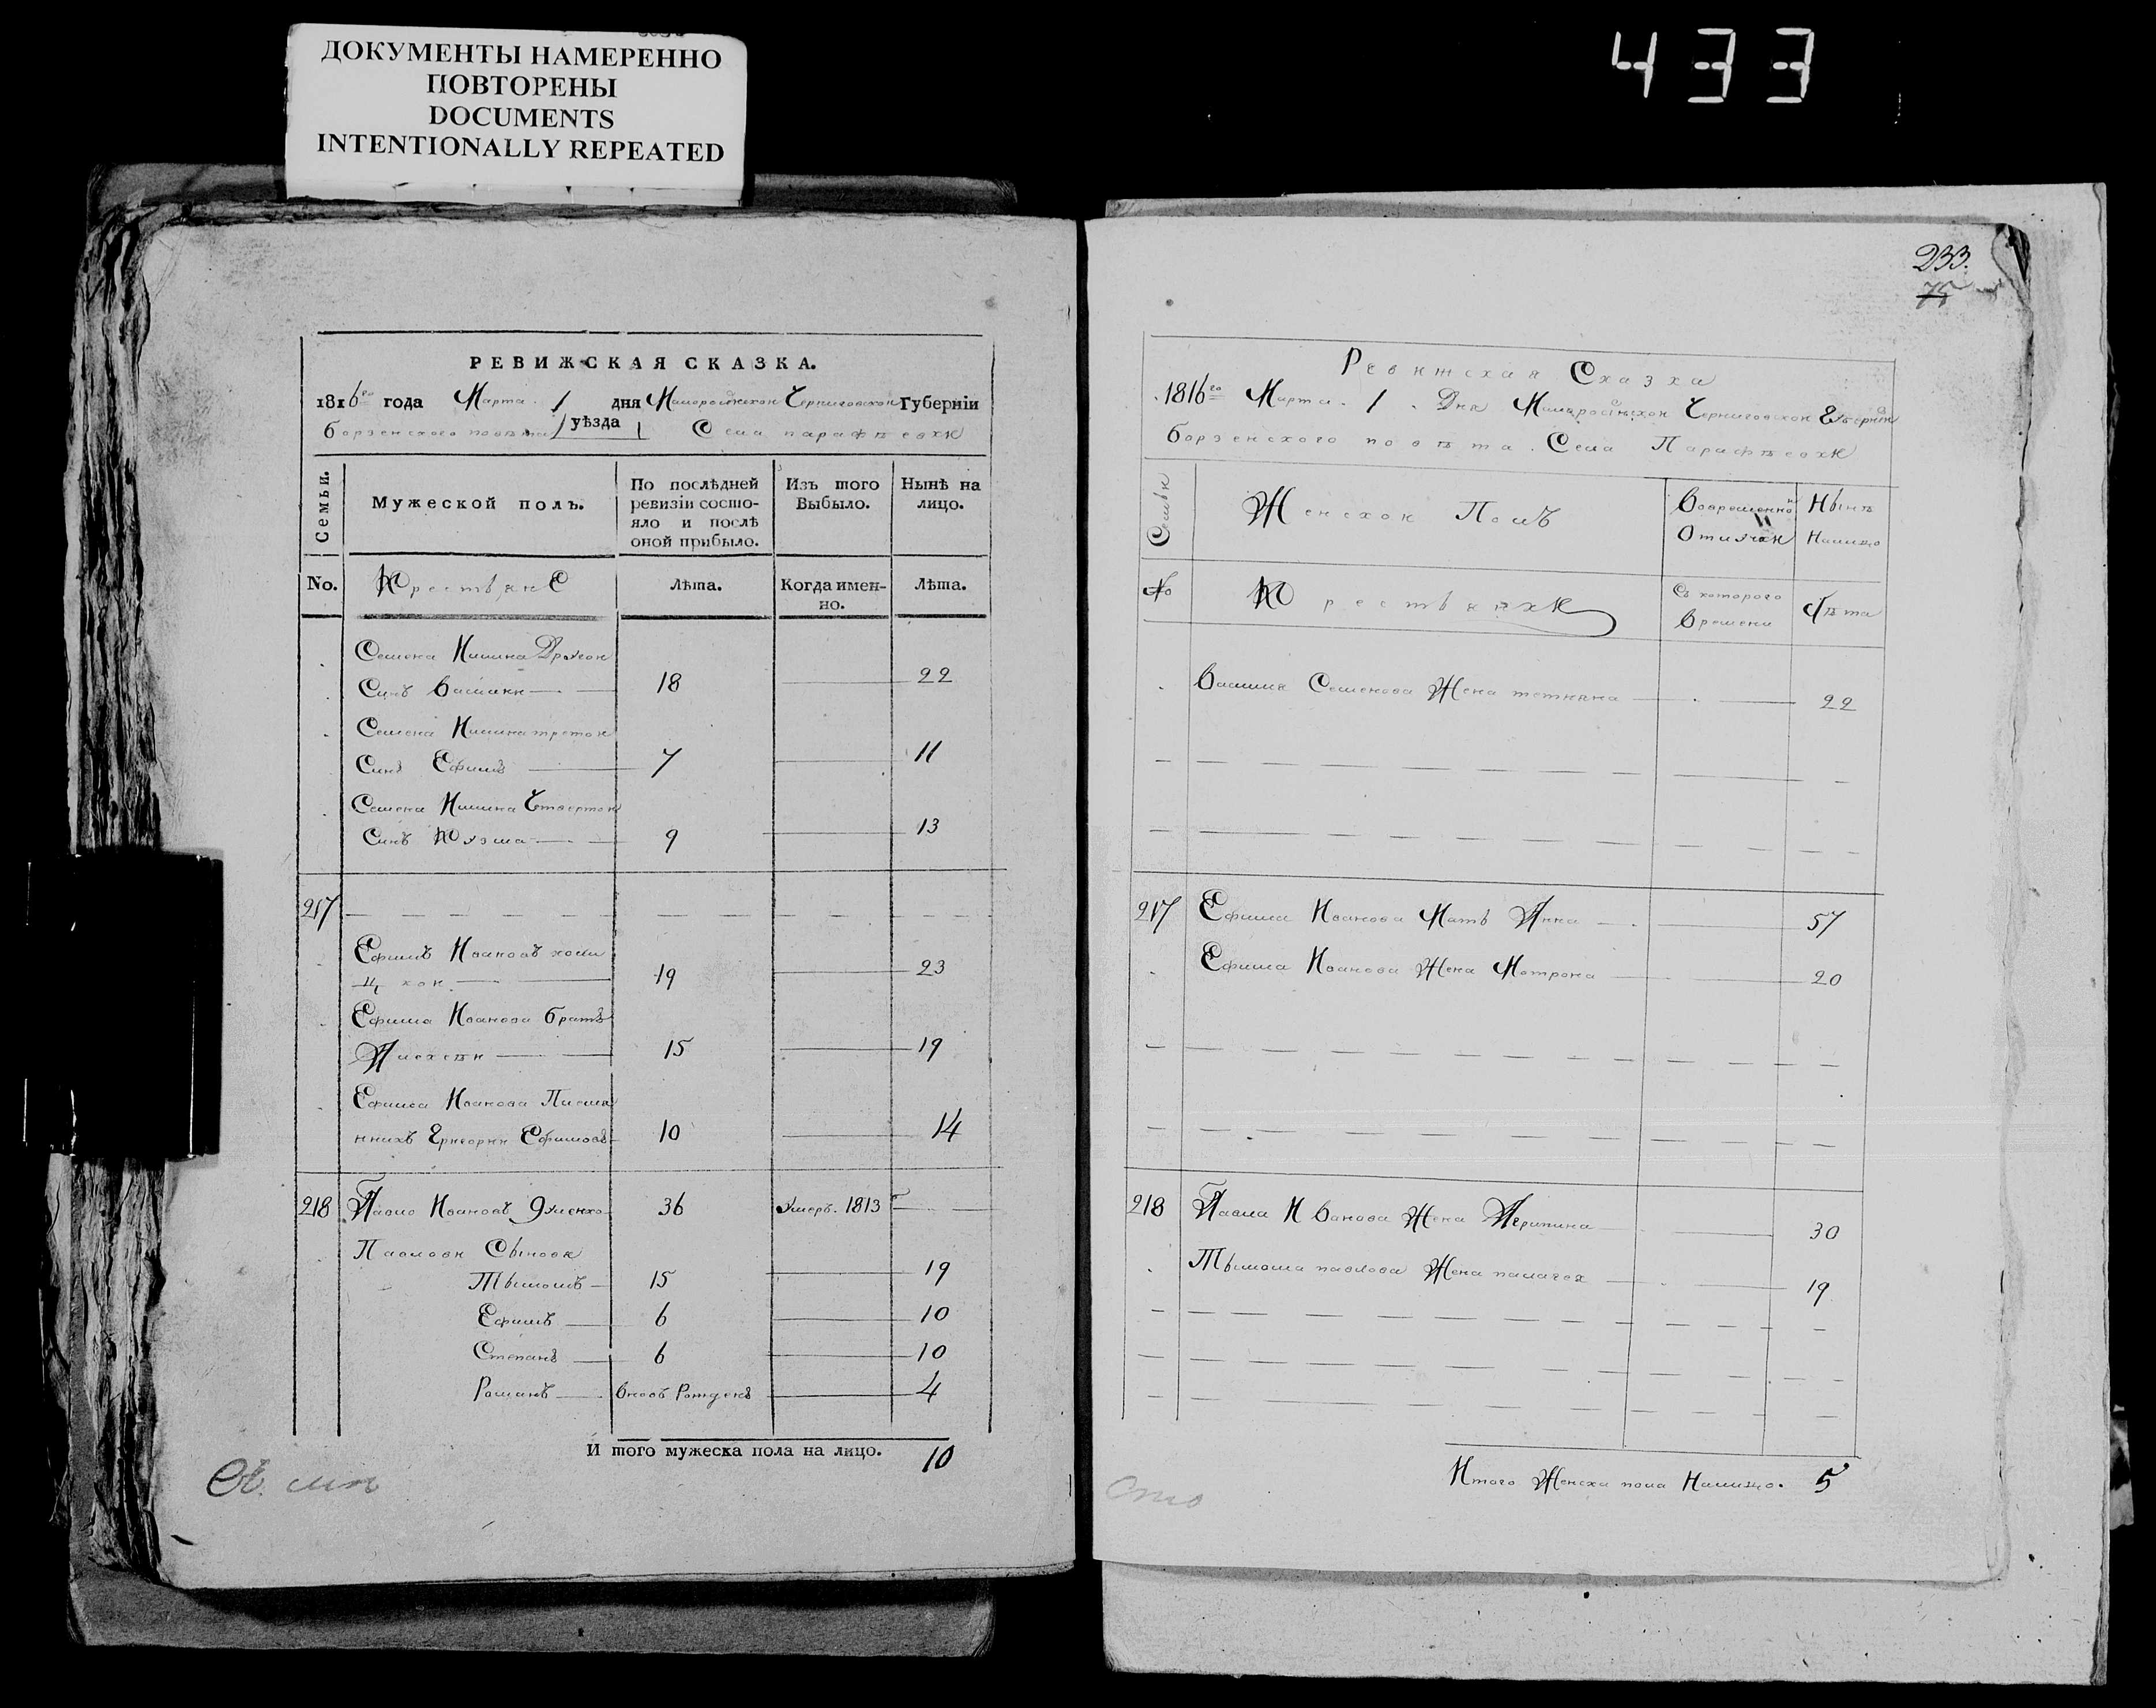 ДОКУМЕНТЫ НАМЕРЕННО
ПОВТОРЕНЫ
DOCUMENTS
INTENTIONALLY REPEATED
433
РЕВИЖСКАЯ СКАЗКА.
1816го года Марта 1 дня Малоросійской Черниговской Губерніи
борзенского повѣта уѣзда Села парафѣевки
Семьи.
Мужеской полъ.
По послѣдней ревизіи состо-
яло и послѣ
оной прибыло.
Изъ того
Выбыло.
Нынѣ на
лицо.
No.
Крестьяне
Лѣта.
Когда имен-
но.
Лѣта.
Семена Килина Другой
Синъ Василий 18 22
Семена Килина третой
Синъ Ефимъ 7 11
Семена Килина Четвертой
Синъ Кузма 9 13
217
Ефимъ Ивановъ
19 23
Ефима Иванова братъ
Алексѣй 15 19
Ефима Иванова Племя
нникъ Григорий Ефимовъ 10 14
218 Павло Ивановъ 36 Умеръ. 1813
Павловы Сыновя
Тымошъ 15 19
Ефимъ 6 10
Степанъ 6 10
Романъ вновъ Рожденъ 4
И того мужеска пола на лицо. 10
233.
75
Ревижская Сказка
1816го Марта 1 Дня Малоросійской Черниговской Губерніи
борзенского повѣта Села Парафѣевки
Семьи
Женской Полъ
Вовременной
Отлучки
Нынѣ
Налицо
No
Крестьянки
Съ которого
Времени
Лѣта
Василия Семенова Жена тетияна 22
217 Ефима Иванова Мать Анна 57
Ефима Иванова Жена Мотрона 20
218 Павла Иванова Жена Агрипина 30
Тымоша павлова Жена палагея 19
Итого Женска пола Налицо. 5
Сто